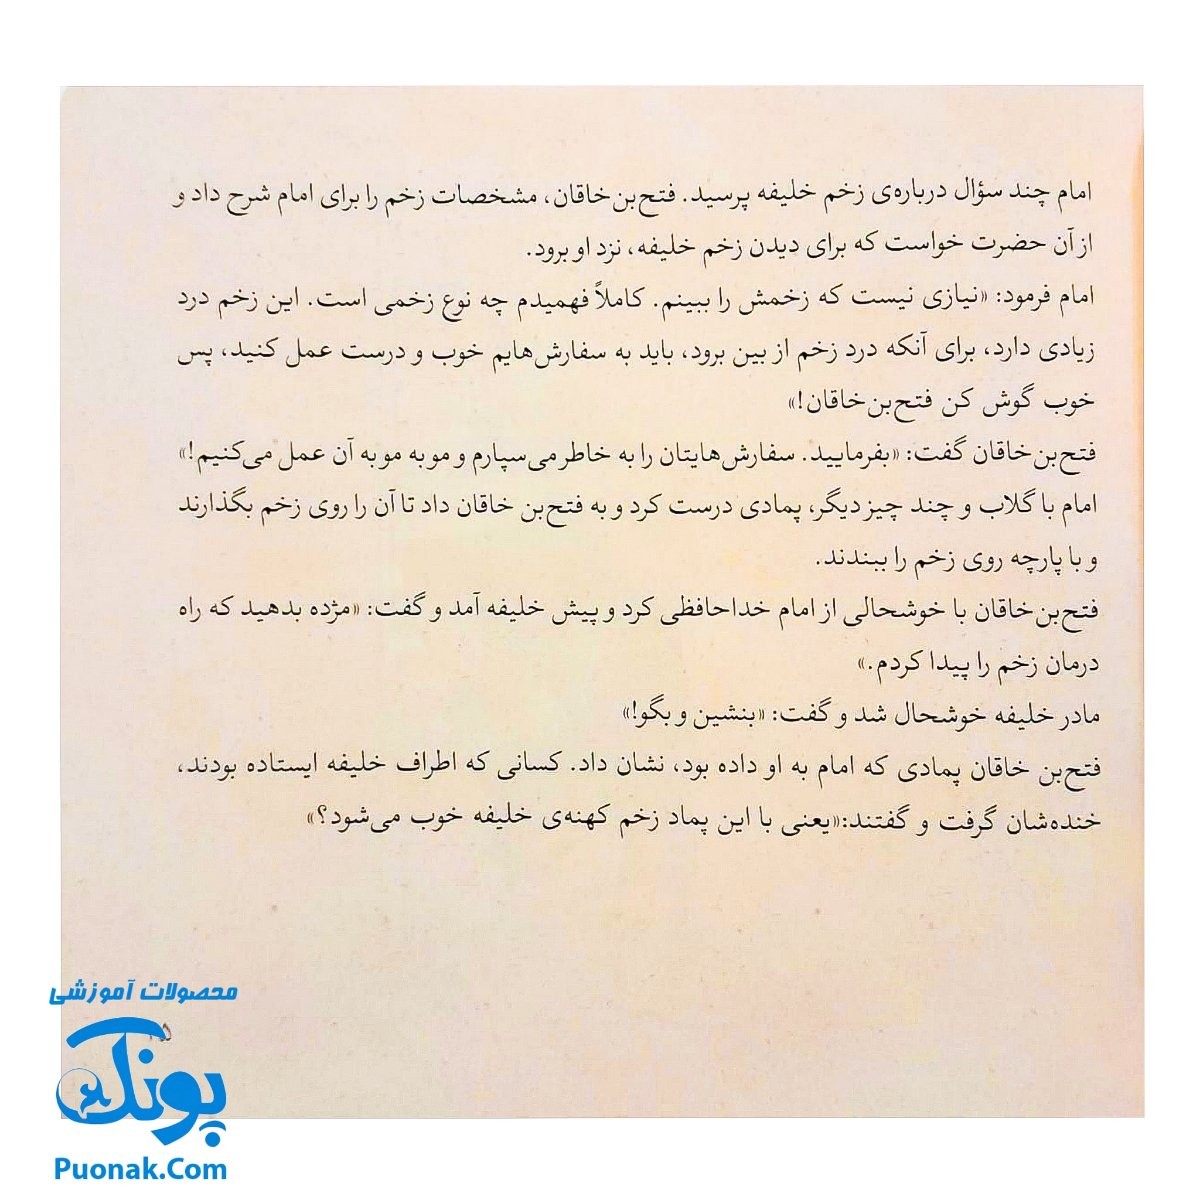 امام چند سؤال درباره‌ی زخم خلیفه پرسید. فتح‌بن‌خاقان، مشخصات زخم را برای امام شرح داد و
از آن حضرت خواست که برای دیدن زخم خلیفه، نزد او برود.
امام فرمود: «نیازی نیست که زخمش را ببینم. کاملاً فهمیدم چه نوع زخمی است. این زخم درد
زیادی دارد، برای آنکه درد زخم از بین برود، باید به سفارش‌هایم خوب و درست عمل کنید، پس
خوب گوش کن فتح‌بن‌خاقان!»
فتح‌بن‌خاقان گفت: «بفرمایید. سفارش‌هایتان را به خاطر می‌سپارم و موبه موبه آن عمل می‌کنیم!»
امام با گلاب و چند چیز دیگر، پمادی درست کرد و به فتح‌بن خاقان داد تا آن را روی زخم بگذارند
و با پارچه روی زخم را ببندند.
فتح‌بن‌خاقان با خوشحالی از امام خداحافظی کرد و پیش خلیفه آمد و گفت: «مژده بدهید که راه
درمان زخم را پیدا کردم.»
مادر خلیفه خوشحال شد و گفت: «بنشین و بگو!»
فتح‌بن خاقان پمادی که امام به او داده بود، نشان داد. کسانی که اطراف خلیفه ایستاده بودند،
خنده‌شان گرفت و گفتند:«یعنی با این پماد زخم کهنه‌ی خلیفه خوب می‌شود؟»
محصولات آموزشی
پونک
Puonak.Com